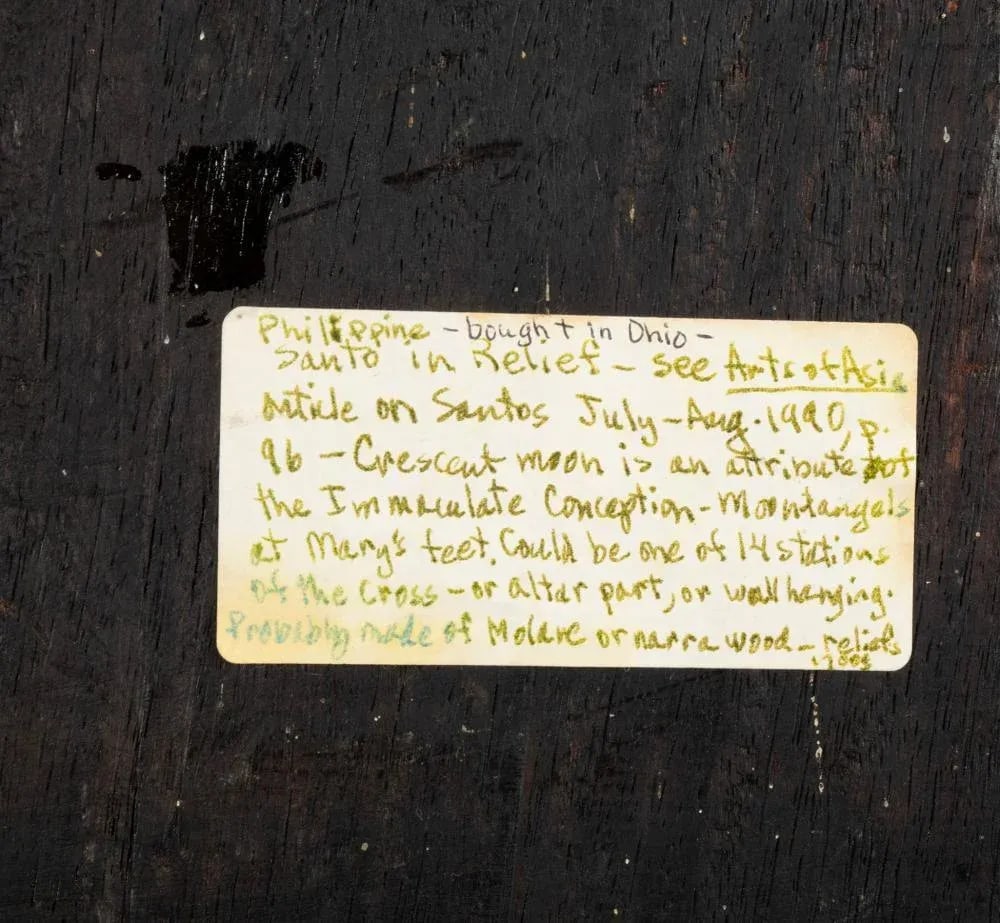 Philippine - bought in Ohio -
Santo in Relief - see Arts of Asia
article on Santos July-Aug. 1990, p.
96 - Crescent moon is an attribute of
the Immaculate Conception - Moon+angels
at Mary's feet. Could be one of 14 stations
of the Cross - or altar part, or wall hanging.
Probably made of Molave or narra wood - reliefs
1700s